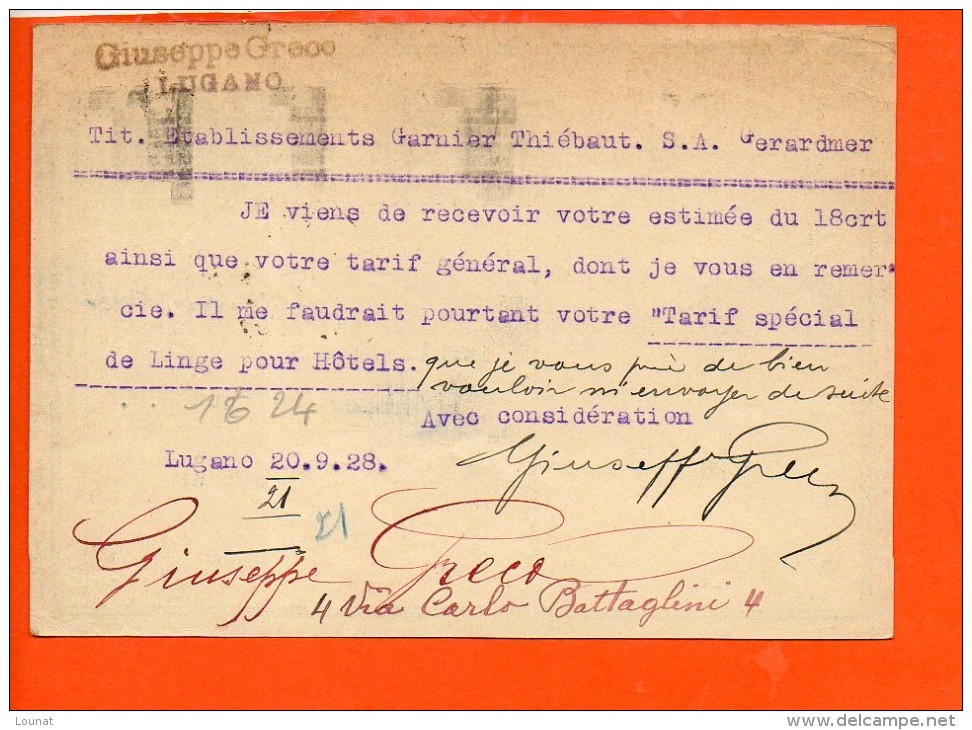 Giuseppe Greco
LUGANO
Tit. Etablissements Garnier Thiébaut. S.A. Gerardmer
JE viens de recevoir votre estimée du 18crt
ainsi que votre tarif général, dont je vous en remer-
cie. Il me faudrait pourtant votre "Tarif spécial
de Linge pour Hôtels. que je vous prie de bien
vouloir m'envoyer de suite
Avec considération
Lugano 20.9.28.
Giuseppe Greco
21
21
Giuseppe Greco
4 Via Carlo Battaglini 4
Lounat
www.delcampe.net